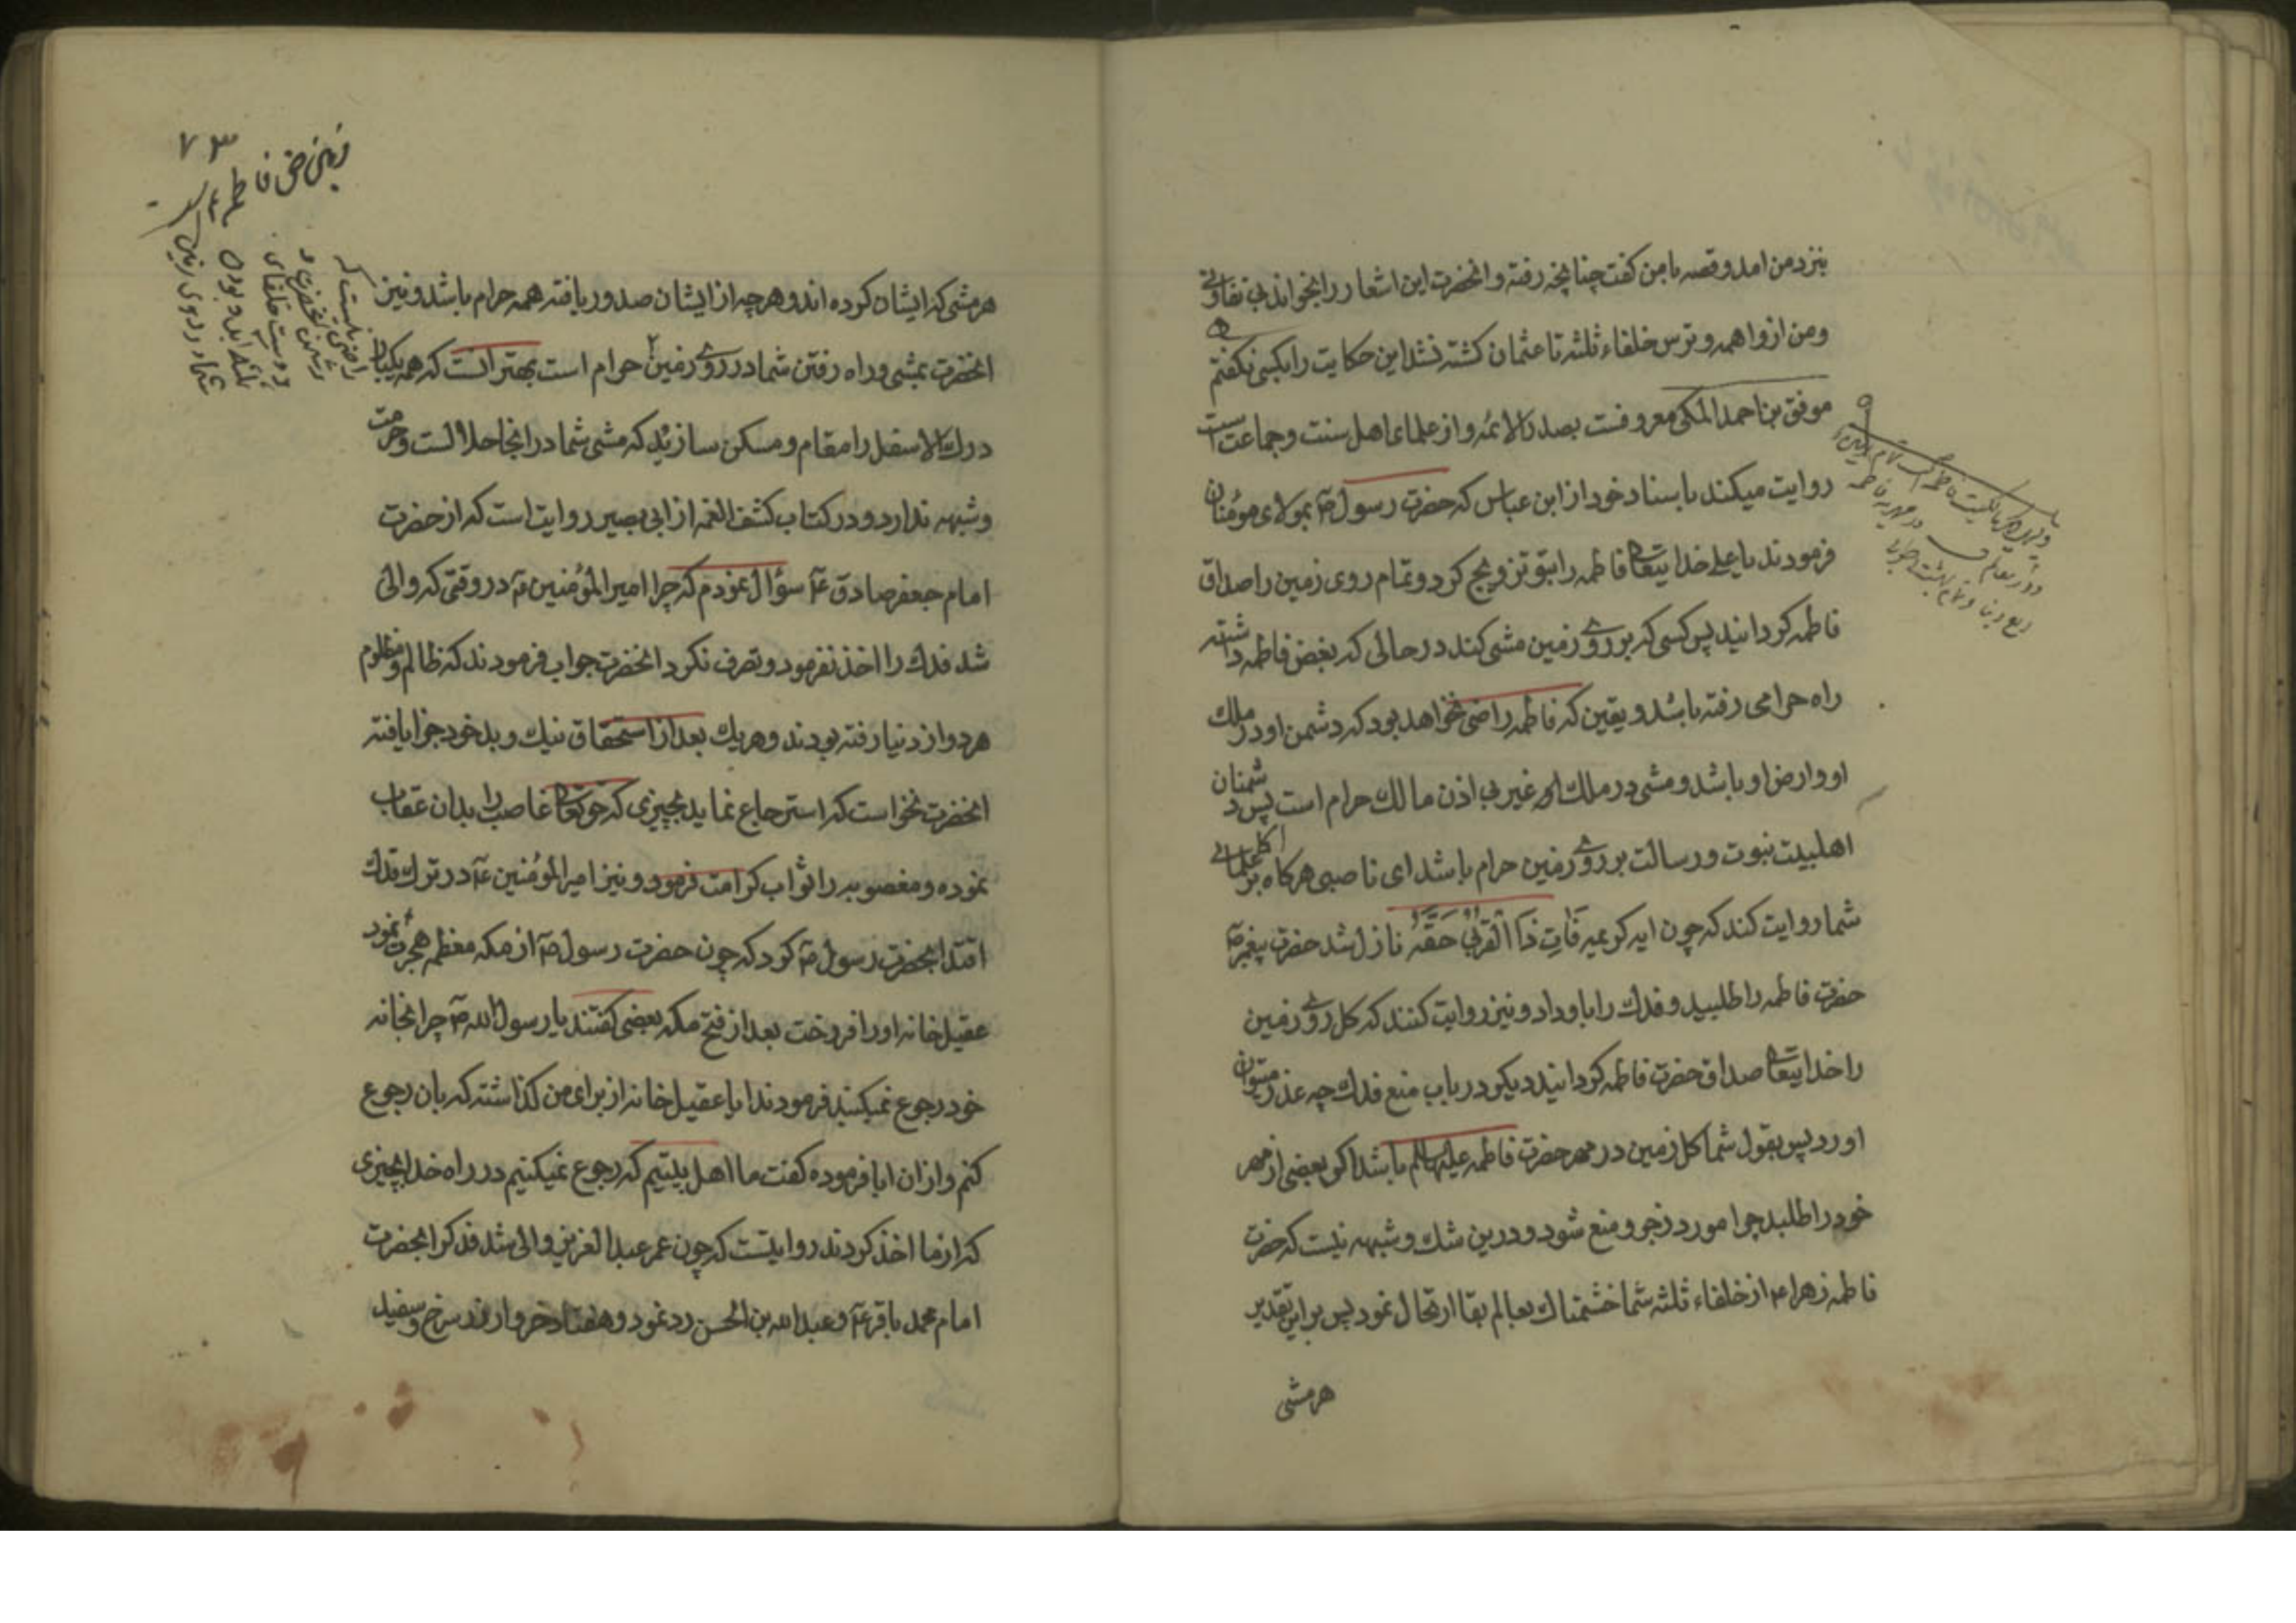 بنزد من امد و قصه با من کفت چنانچه رفته و انحضرت این اشعار را بخواند بی تفاوتی
و من از واهمه و ترس خلفاء ثلثه تا عثمان کشته نشد این حکایت را بکسی نکفتم
موفق بن احمد المکی معروفست بصدر الائمه و از علمای اهل سنت و جماعت است
روایت میکند باسناد خود از ابن عباس که حضرت رسول ص بمولای مومنان
فرمودند یا علی خدایتعالی فاطمه را بتو تزویج کرد و تمام روی زمین را صداق
فاطمه کردانید پس کسی که بر روی زمین مشی کند در حالی که بغض فاطمه داشته
راه حرامی رفته باشد و یقین که فاطمه راضی نخواهد بود که دشمن او در ملک
او و ارض او باشد و مشی در ملک غیر بی اذن مالک حرام است پس دشمنان
اهلبیت نبوت و رسالت بر روی زمین حرام باشد ای ناصبی هرکاه علمای
شما روایت کند که چون ایه کریمه فَاتِ ذَا الْقُرْبی حَقَّهُ نازل شد حضرت پیغمبر ص
حضرت فاطمه را طلبید و فدک را باو داد و نیز روایت کنند که کل روی زمین
را خدایتعالی صداق حضرت فاطمه کردانید دیکر در باب منع فدک چه عذر میتوان
اورد پس بقول شما کل زمین در مهر حضرت فاطمه علیها السلم باشد اکر بعضی از مهر
خود را طلبد چرا مورد زجر و منع شود و درین شک و شبهه نیست که حضرت
فاطمه زهرا ع از خلفاء ثلثه شما خشمناک بعالم بقا ارتحال نمود پس بر این تقدیر
هر مشی
۷۳
هر مشی که ایشان کرده اند و هر چه از ایشان صدور یافته همه حرام باشد و نیز
انحضرت بمشی و راه رفتن شما در روی زمین حرام است بهتر انست که همه یکبار
درک الاسفل را مقام و مسکن سازید که مشی شما در انجا حلالست و حرمت
و شبهه ندارد و در کتاب کشف الغمه از ابی بصیر روایت است که از حضرت
امام جعفر صادق ع سؤال نمودم که چرا امیر المؤمنین ع در وقتی که والی
شد فدک را اخذ نفرمود و تصرف نکرد انحضرت جواب فرمودند که ظالم و مظلوم
هر دو از دنیا رفته بودند و هریک بعد از استحقاق نیک و بد خود جزا یافته
انحضرت نخواست که استرجاع نماید بچیزی که حقتعالی غاصب را بدان عقاب
نموده و مغصوبه را ثواب کرامت فرمود و نیز امیر المؤمنین ع در ترک فدک
اقتدا بحضرت رسول ص کرد که چون حضرت رسول ص از مکه معظمه هجرت نمود
عقیل خانه او را فروخت بعد از فتح مکه بعضی کفتند یا رسول الله ص چرا بخانه
خود رجوع نمیکنید فرمودند ایا عقیل خانه از برای من کذاشته که بان رجوع
کنم و از ان ابا فرموده کفت ما اهل بیتیم که رجوع نمیکنیم در راه خدا بچیزی
که از ما اخذ کردند روایتست که چون عمر عبد العزیز والی شد فدک را بحضرت
امام محمد باقر ع و عبد الله بن الحسن رد نمود و هفتاد خروار زر سرخ و سفید